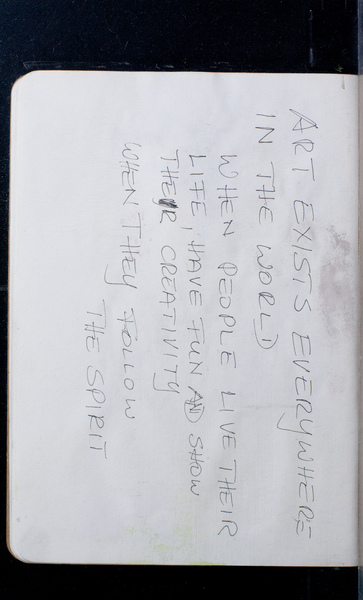 ART EXISTS EVERYWHERE
IN THE WORLD
WHEN PEOPLE LIVE THEIR
LIFE, HAVE FUN AND SHOW
THEIR CREATIVITY
WHEN THEY FOLLOW
THE SPIRIT